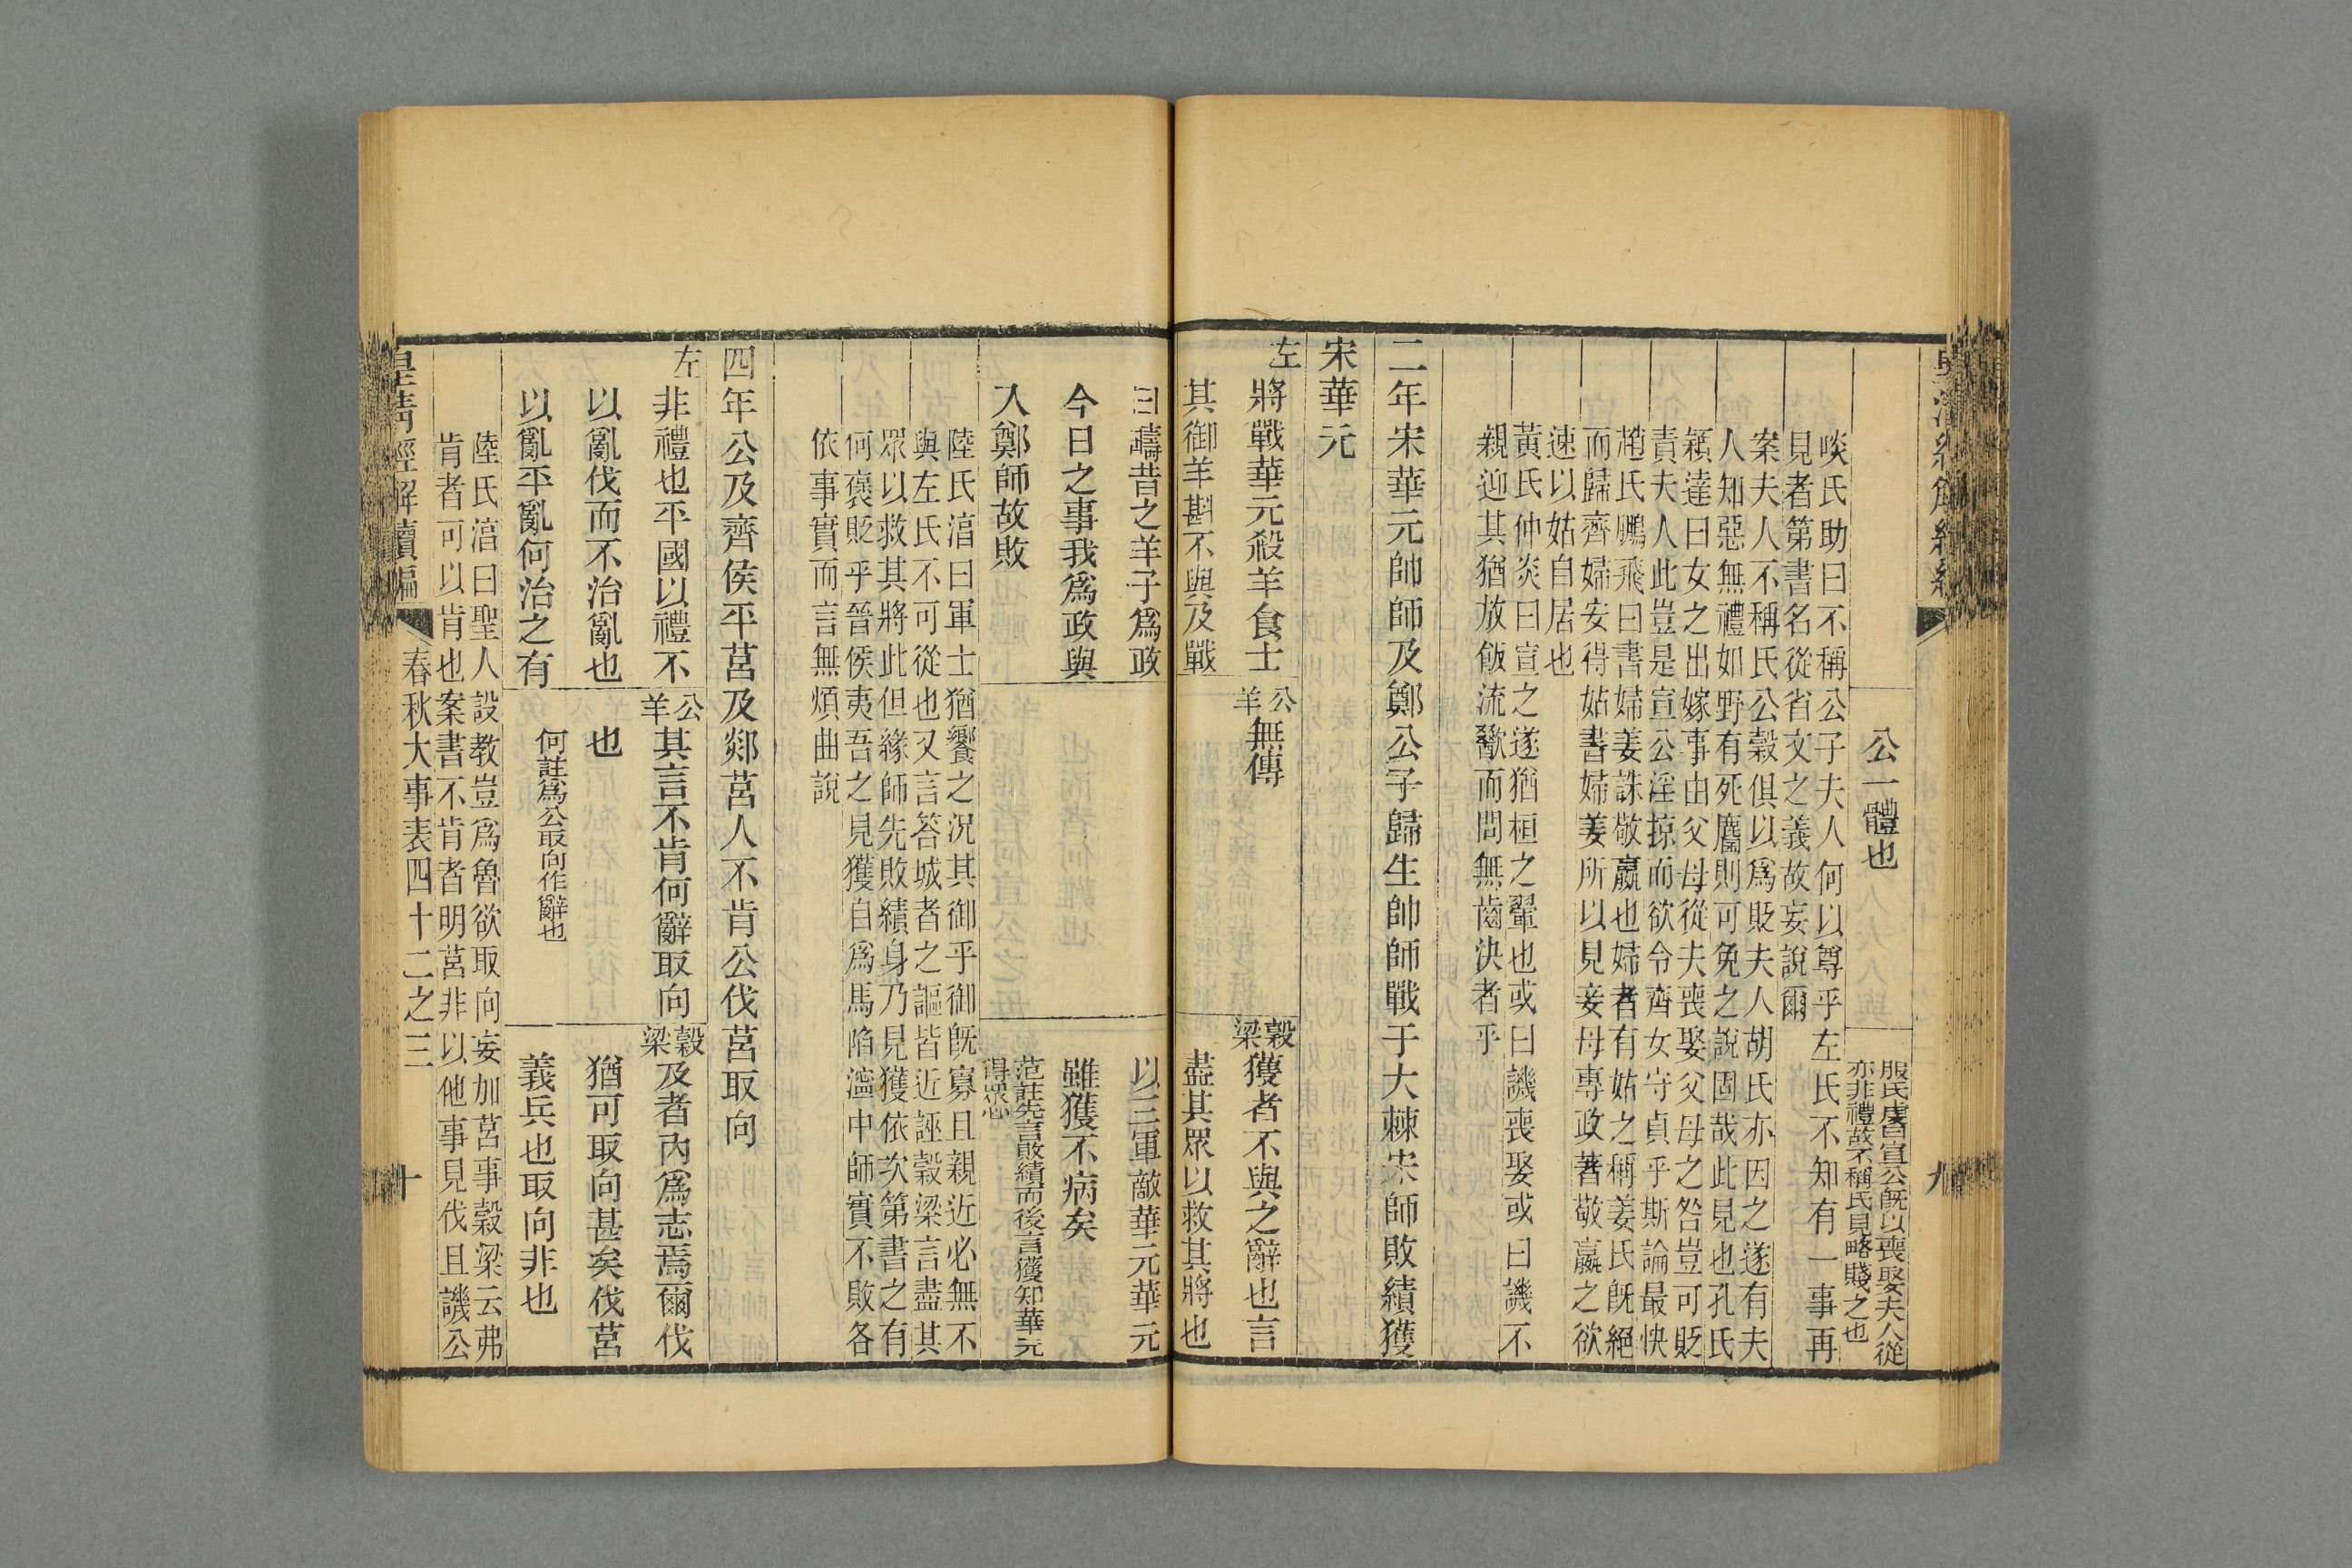 公一體也
服氏虔曰宣公既以喪娶夫人從
亦非禮故不稱氏見略賤之也
啖氏助曰不稱公子夫人何以尊乎左氏不知有一事再
見者第書名從省文之義故妄說爾
案夫人不稱氏公穀俱以爲貶夫人胡氏亦因之遂有夫
人知惡無禮如野有死麕則可免之說固哉此見也孔氏
穎達曰女之出嫁事由父母從夫喪娶父母之咎豈可貶
責夫人此豈是宣公淫掠而欲令齊女守貞乎斯論最快
趙氏鵬飛曰書婦姜誅敬嬴也婦者有姑之稱姜氏既絕
而歸齊婦安得姑書婦姜所以見妾母專政著敬嬴之欲
速以姑自居也
黃氏仲炎曰宣之遂猶桓之翬也或曰譏喪娶或曰譏不
親迎其猶放飯流歠而問無齒決者乎
二年宋華元帥師及鄭公子歸生帥師戰于大棘宋師敗績獲
宋華元
左
將戰華元殺羊食士
其御羊斟不與及戰
曰疇昔之羊子爲政
今日之事我爲政與
入鄭師故敗
公羊
無傳
穀梁
獲者不與之辭也言
盡其眾以救其將也
以三軍敵華元華元
雖獲不病矣
范註先言敗績而後言獲知華元
得眾心
陸氏湻曰軍士猶饗之況其御乎御既寡且親近必無不
與左氏不可從也又言答城者之謳皆近誣穀梁言盡其
眾以救其將此但緣師先敗績身乃見獲依次第書之有
何襃貶乎晉侯夷吾之見獲自爲馬陷濘中師實不敗各
依事實而言無煩曲說
四年公及齊侯平莒及郯莒人不肯公伐莒取向
左
非禮也平國以禮不
以亂伐而不治亂也
以亂平亂何治之有
公羊
其言不肯何辭取向
也
何註爲公取向作辭也
穀梁
及者內爲志焉爾伐
猶可取向甚矣伐莒
義兵也取向非也
陸氏湻曰聖人設教豈爲魯欲取向妄加莒事穀梁云弗
肯者可以肯也案書不肯者明莒非以他事見伐且譏公
皇清經解續編
春秋大事表四十二之三
十